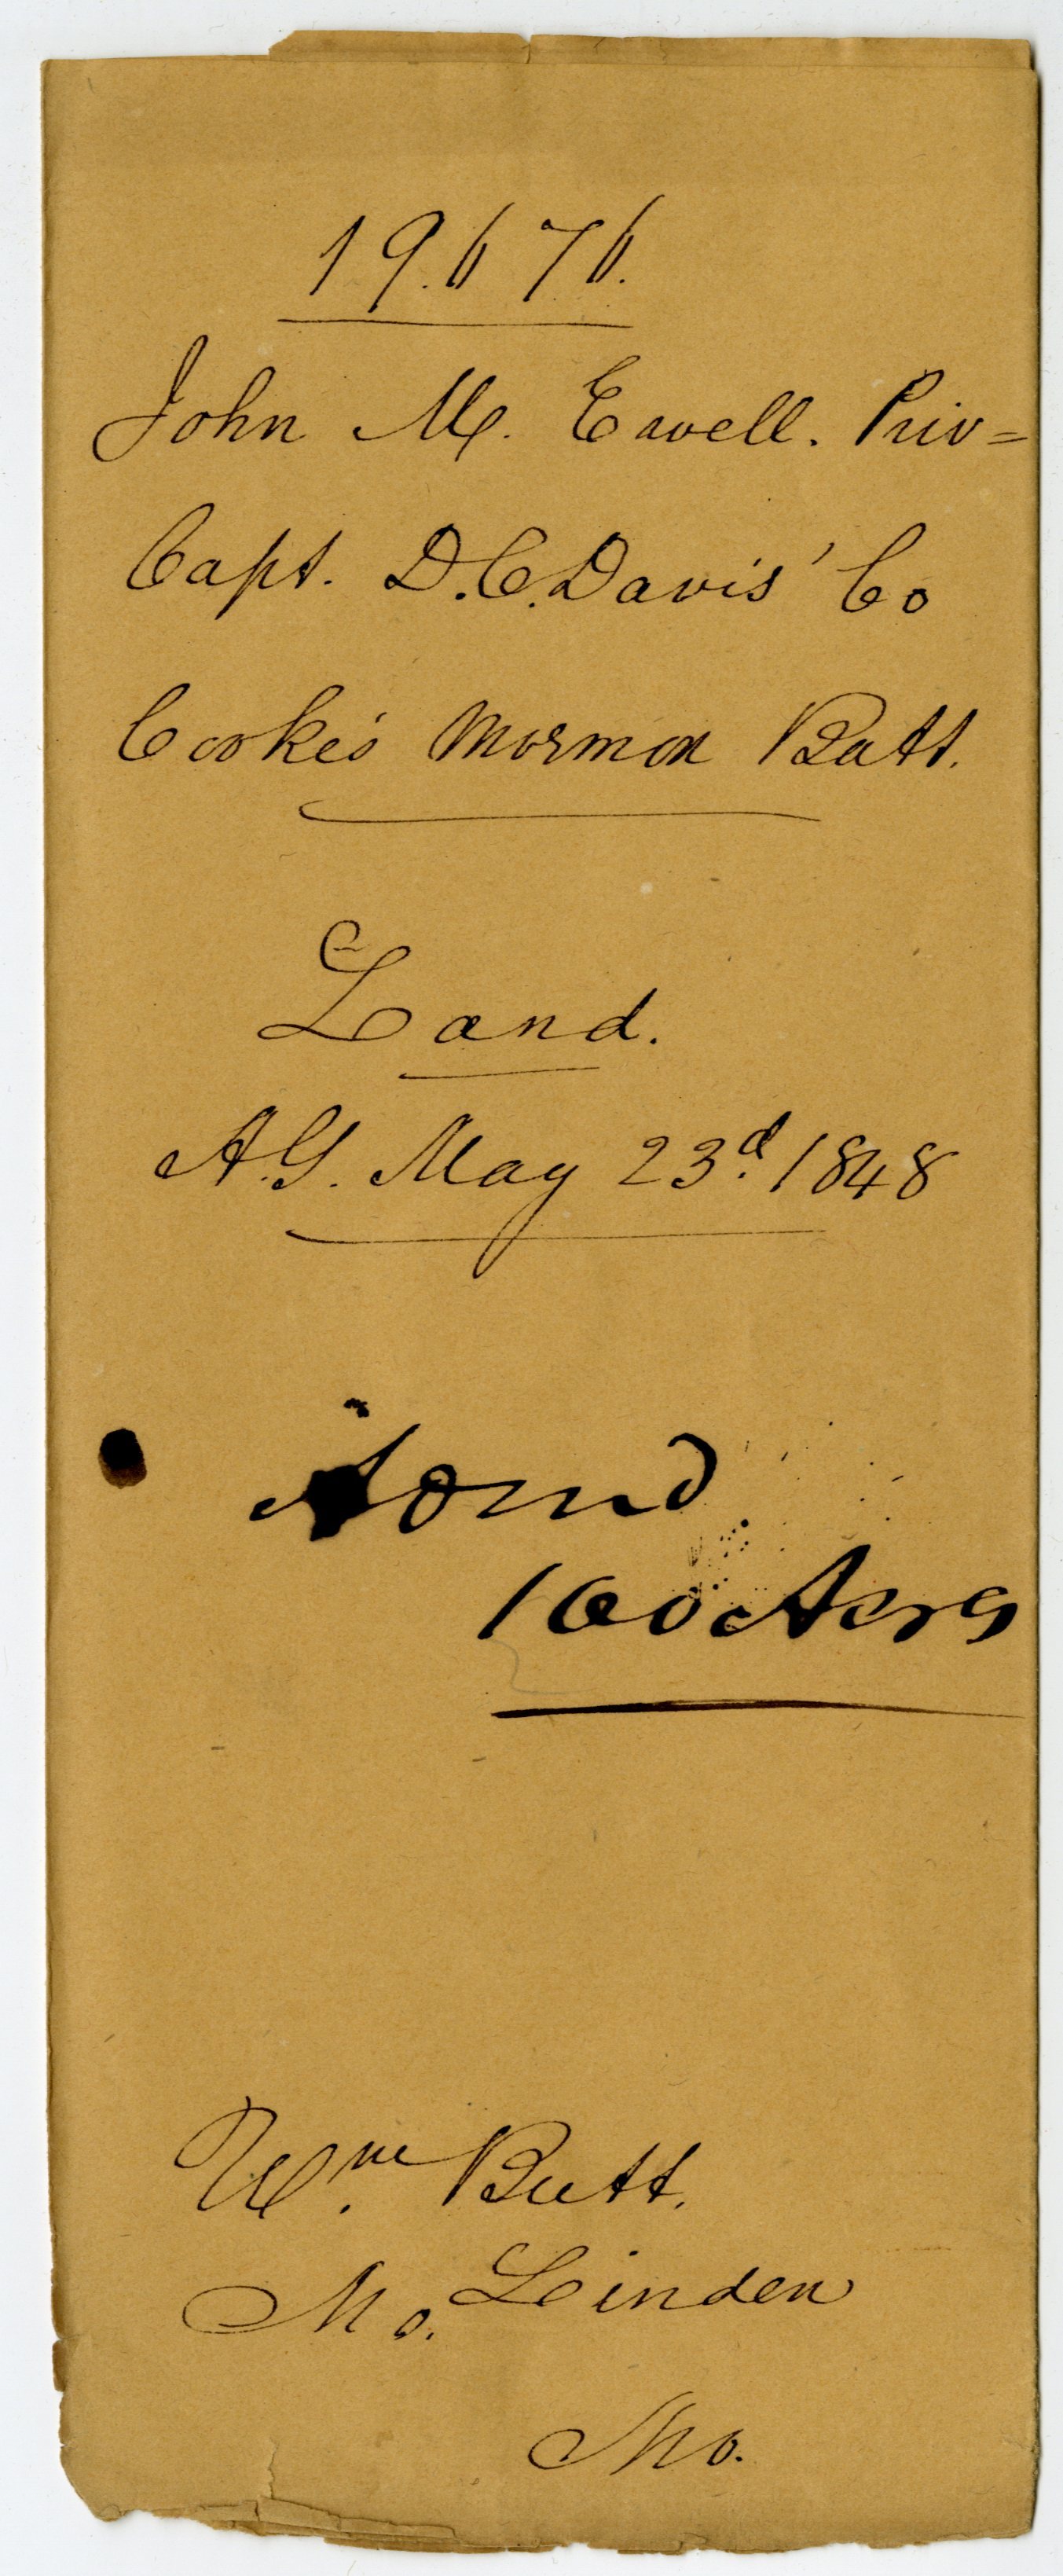 19.676.
John M. Ewell. Priv=
Capt. D.C. Davis' Co
Cooke's Mormon Batt.
Land.
A.G. May 23d. 1848
160 Acres
Wm. Butt.
Mo. Linden
Mo.